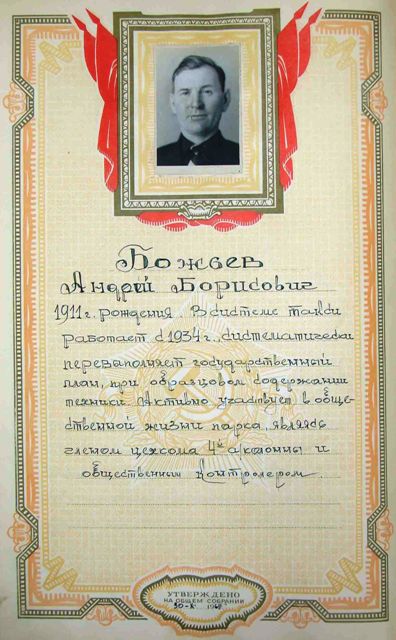 Божьев
Андрей Борисович
1911 г. рождения. В системе такси
работает с 1934 г., систематически
перевыполняет государственный
план, при образцовом содержании
техники. Активно участвует в обще-
ственной жизни парка, являясь
членом цехкома 4й а/колонны и
общественным контролером.
УТВЕРЖДЕНО
НА ОБЩЕМ СОБРАНИИ